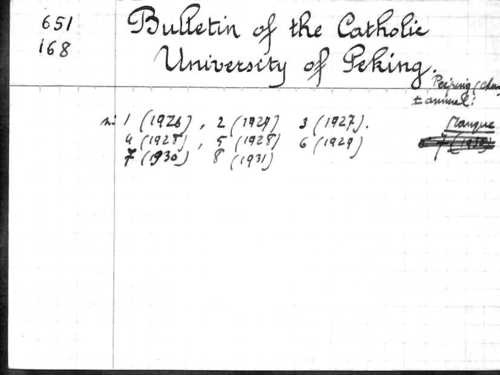 651
168
Bulletin of the Catholic
University of Peking.
Peiping (Chin
± annuel:
n: 1 (1926), 2 (1927) 3 (1927).
Manque
4 (1928), 5 (1928) 6 (1929)
7 (1930) 8 (1931)